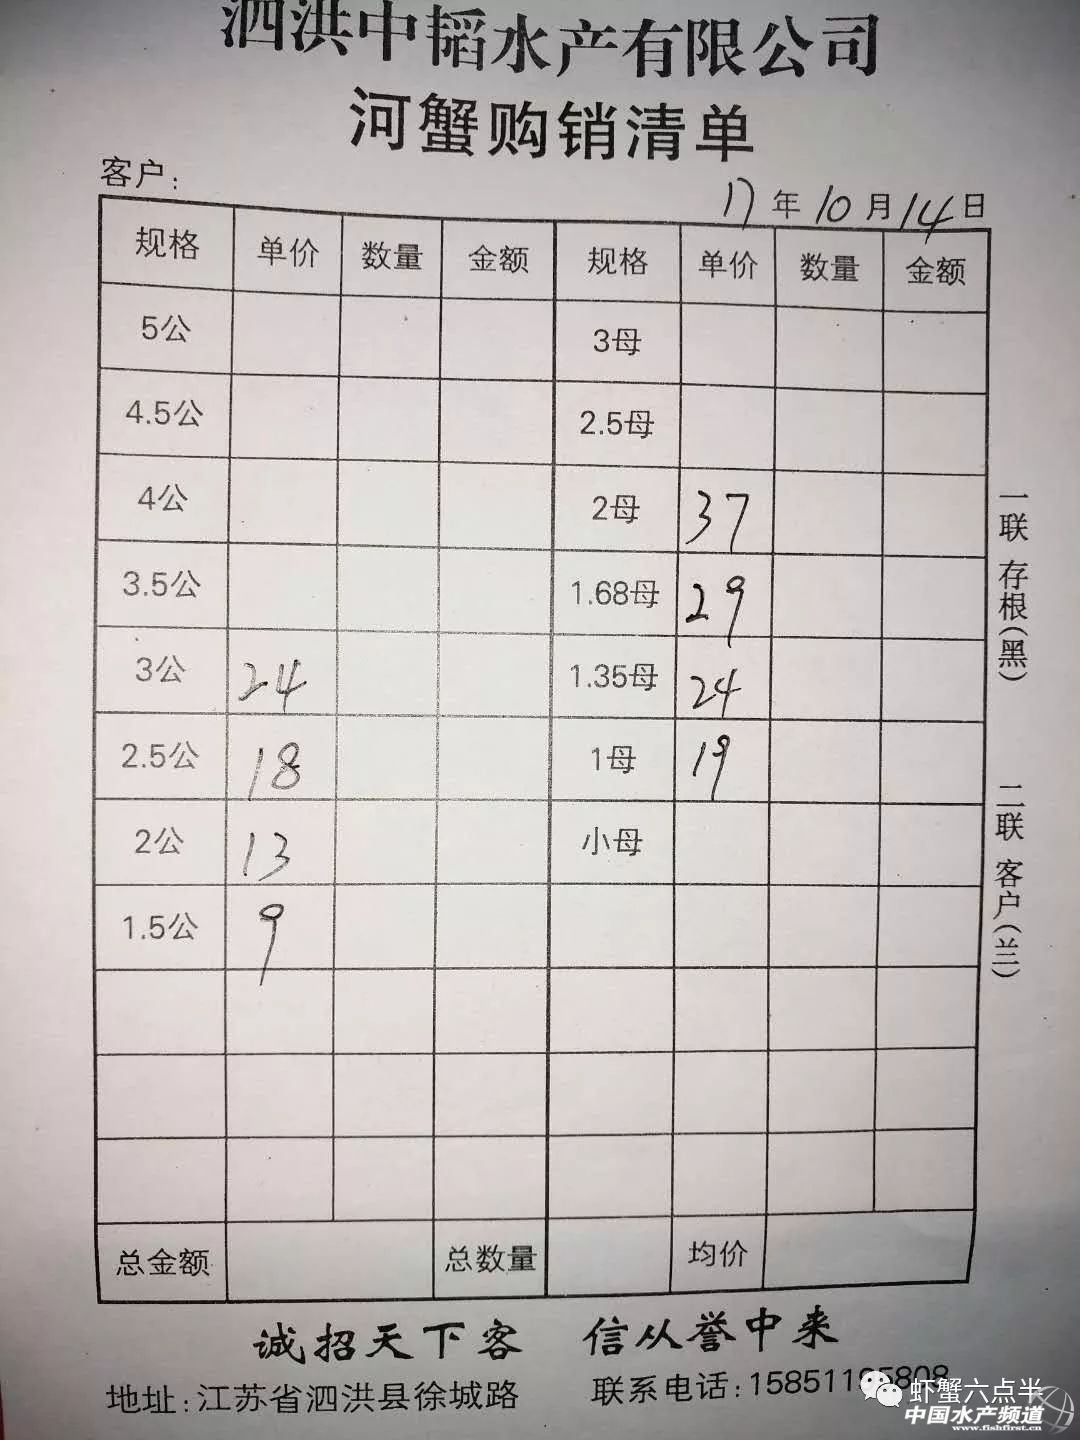 泗洪中韬水产有限公司
河蟹购销清单
客户：
17年10月14日
规格 单价 数量 金额 规格 单价 数量 金额
5公 3母
4.5公 2.5母
4公 2母 37
3.5公 1.68母 29
3公 24 1.35母 24
2.5公 18 1母 19
2公 13 小母
1.5公 9
总金额 总数量 均价
一联 存根(黑)
二联 客户(兰)
诚招天下客 信从誉中来
地址:江苏省泗洪县徐城路 联系电话:
虾蟹六点半
中国水产频道
www.fishfirst.cn